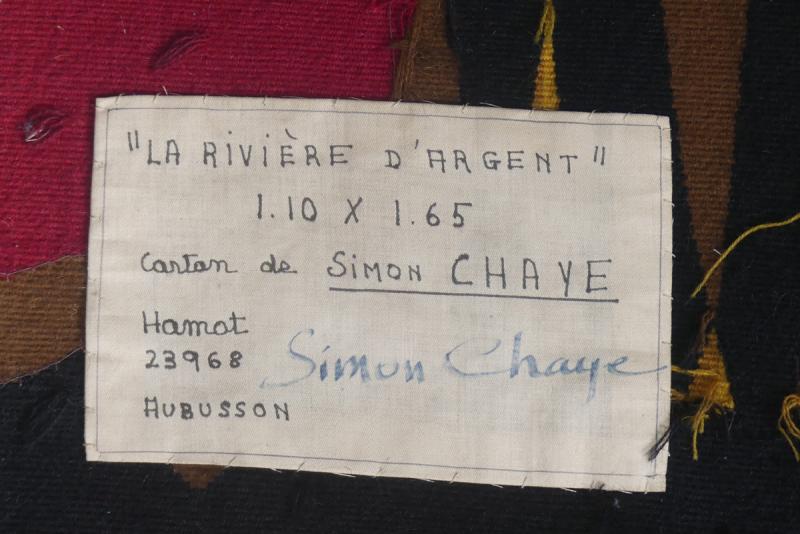 "LA RIVIÈRE D'ARGENT"
1.10 X 1.65
Carton de SIMON CHAYE
Hamot
23968 Simon Chaye
AUBUSSON